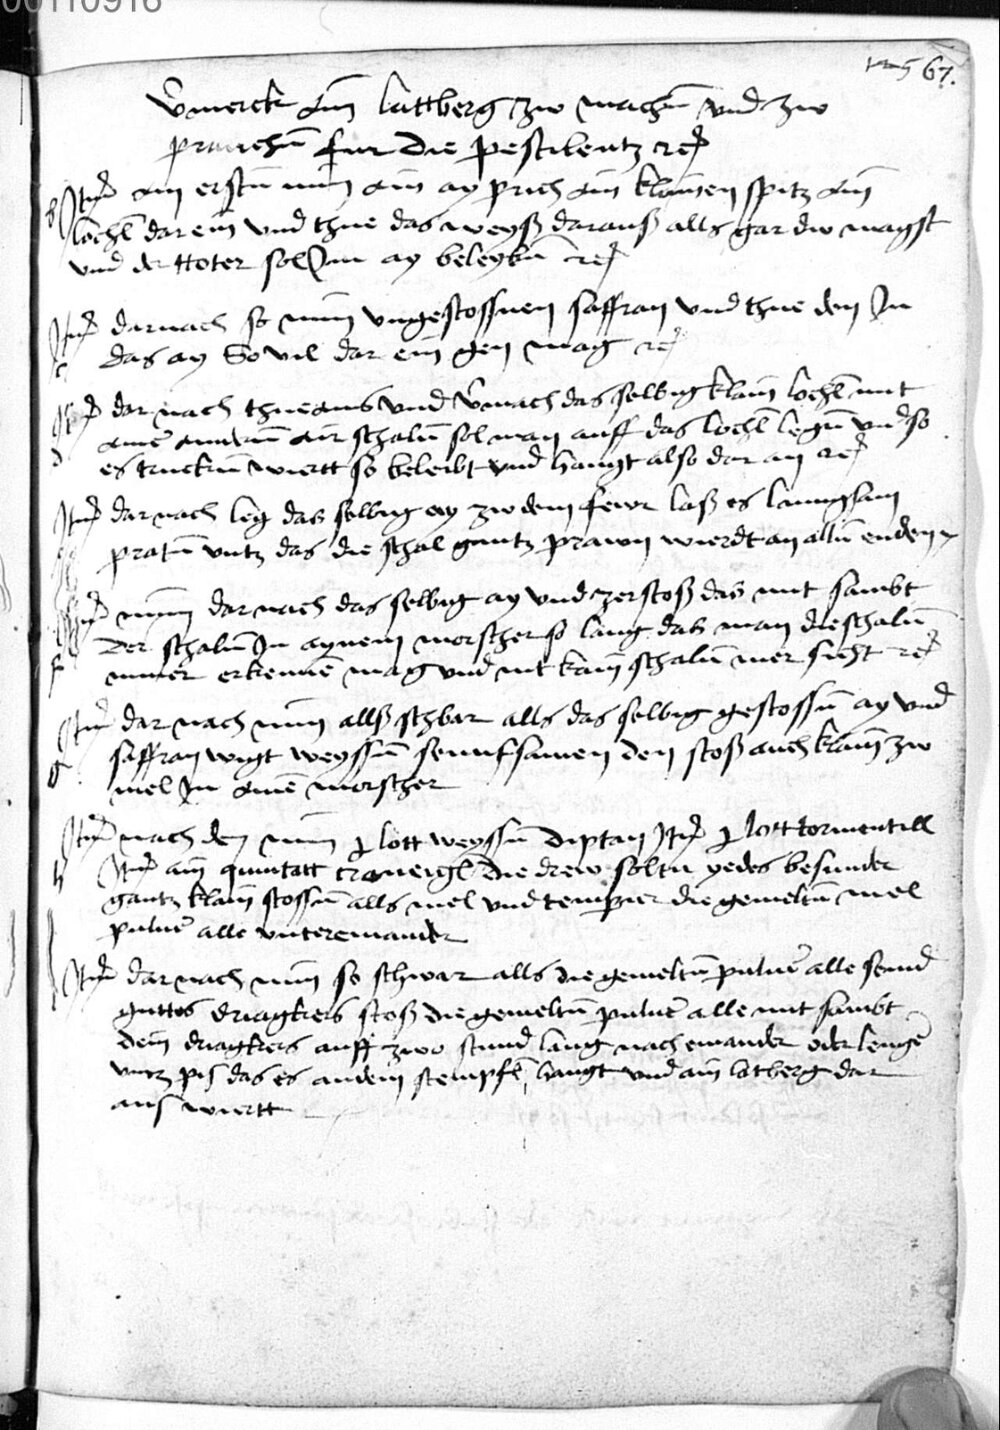 00110916
567.
Vermerck ain lattberg zw machen und zw
prauchen fur die pestilentz rc
b Item am ersten nim ain ay prich ain klainen spitz ain
lochl dar ein und thue das weyß daraus alls gar dw magst
und der ttoter sol Im ay beleyben rc
c Item darnach so nim ungestossnen saffran und thue den In
das ay So vil dar ein gen mag rc
d Item dar nach thue ams und vermach das selbig klain lochl mit
ainer andern air schalen sol man auff das lochl legen und so
es trucken wiertt so beleibt und hangt also dar an rc
Item dar nach leg das selbig ay zw dem fewr laß es lanngsam
praten untz das die schal gantz prawn wierdt an allen enden
f Item nimm dar nach das selbig ay und zerstoß das mit sambt
der schalen In aynem morscher so lang das man die schalen
nimer erkennen mag und nit kain schalen mer sicht rc
g Item dar nach nim allß schbar alls das selbig gestossen ay und
saffran wigt weyssen senifsamen den stoß auch klain zw
mel In ainem morscher
h Item nach dem nim j lott weyssen diptan Item j lott tormentill
Item ain quintatt craneigl die drew solten yedes besunder
gantz klain stossen alls mel und temperier die gemelten mel
pulver alle untereinander
Item dar nach nim so schwar alls die gemelten pulver alle seind
guttes driagkers stoß die gemelten pulver alle mit sambt
dem driagkers auff zwo stund lang nach einander oder lenger
untz pis das es an dem stempfl hangt und ain latberg dar
aus wiertt